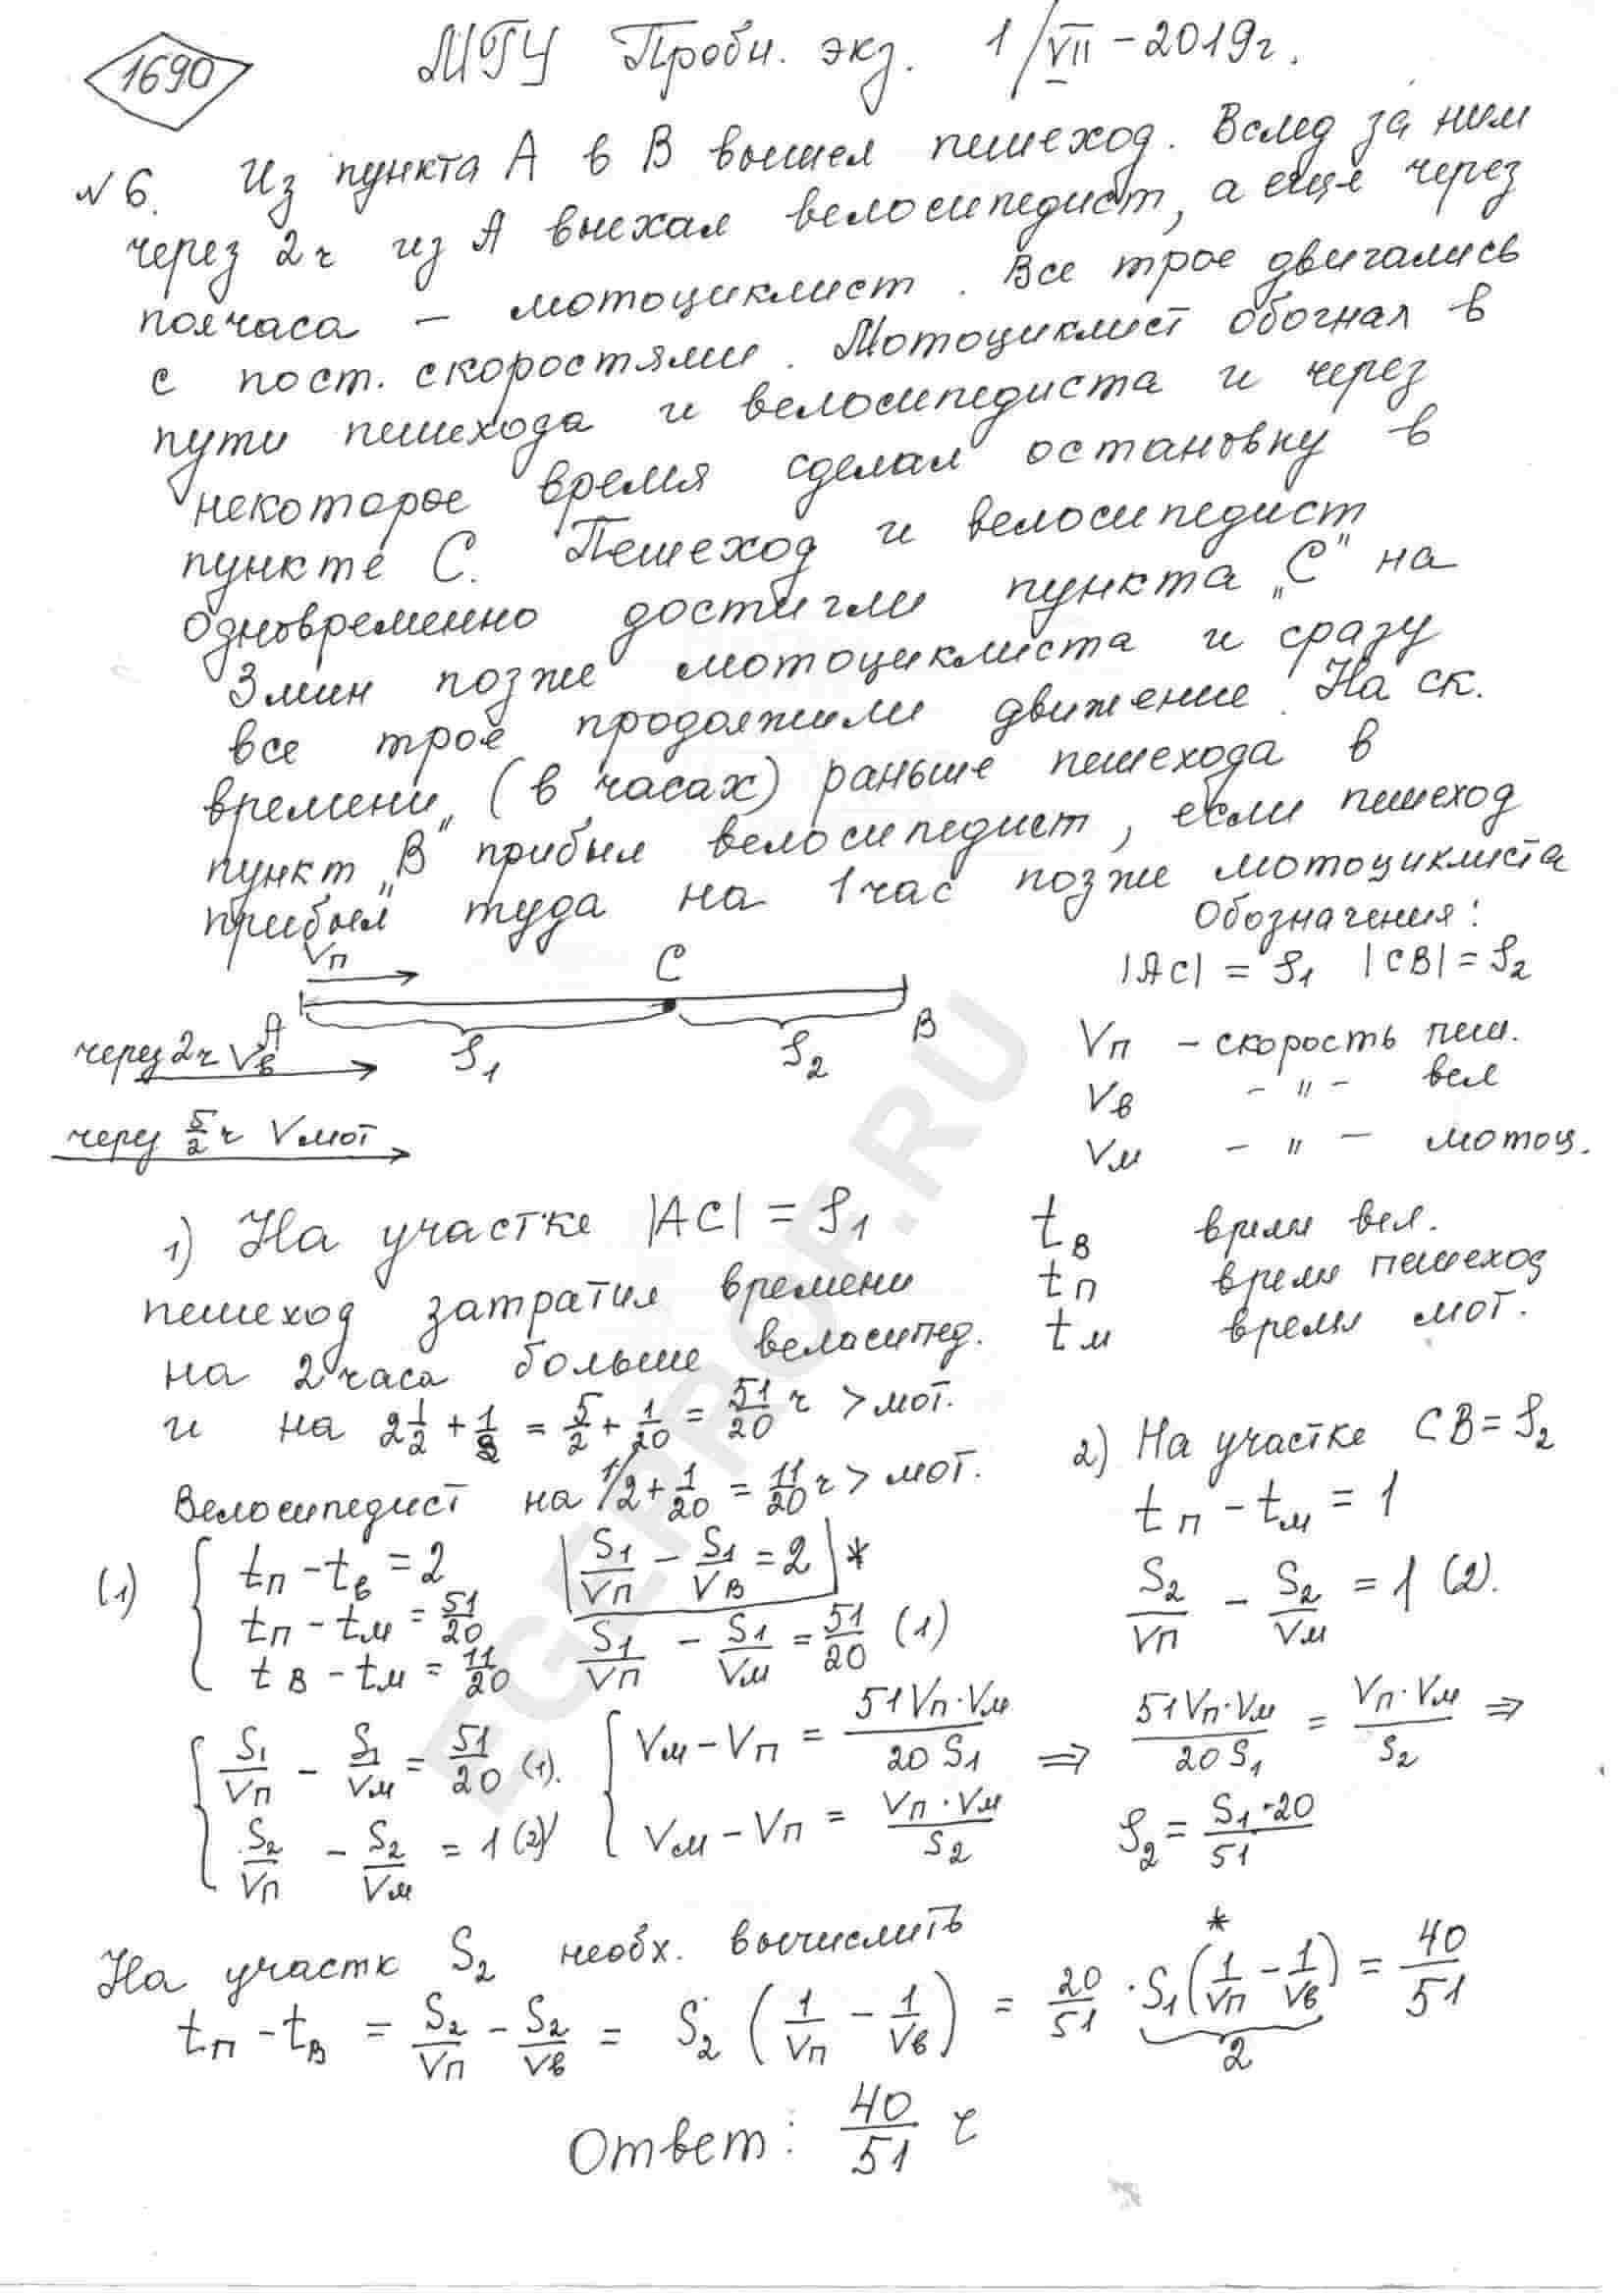 1690
МГУ Пробн. экз. 1/VII-2019г.
№6. Из пункта А в В вышел пешеход. Вслед за ним
через 2ч из А выехал велосипедист, а еще через
полчаса – мотоциклист. Все трое двигались
с пост. скоростями. Мотоциклист обогнал в
пути пешехода и велосипедиста и через
некоторое время сделал остановку в
пункте С. Пешеход и велосипедист
одновременно достигли пункта „С" на
3мин позже мотоциклиста и сразу
все трое продолжили движение. На ск.
времени (в часах) раньше пешехода в
пункт „В" прибыл велосипедист, если пешеход
прибыл туда на 1час позже мотоциклиста
Обозначения:
Vп С |AC| = S1 |CB| = S2
A B
через 2ч Vв S1 S2
Vп – скорость пеш.
Vв – " – вел
через 5/2 ч Vмот
Vм – " – мотоц.
1) На участке |AC| = S1
tв время вел.
пешеход затратил времени
tп время пешеход
на 2часа больше веласипед.
tм время мот.
и на 2 1/2 + 1/8 = 5/2 + 1/20 = 51/20 ч > мот.
2) На участке CB = S2
Велосипедист на 1/2 + 1/20 = 11/20 ч > мот.
tп – tм = 1
(1) { tп – tв = 2
tп – tм = 51/20
tв – tм = 11/20
S1/Vп – S1/Vв = 2 *
S1/Vп – S1/Vм = 51/20 (1)
S2/Vп – S2/Vм = 1 (2).
{ S1/Vп – S1/Vм = 51/20 (1).
S2/Vп – S2/Vм = 1 (2)
{ Vм – Vп = 51Vп·Vм/20 S1
Vм – Vп = Vп·Vм/S2
⇒ 51Vп·Vм/20 S1 = Vп·Vм/S2 ⇒
S2 = S1·20/51
На участк S2 необх. вычислить
tп – tв = S2/Vп – S2/Vв = S2 (1/Vп – 1/Vв) = 20/51 · S1 (1/Vп – 1/Vв) = 40/51
*
2
Ответ: 40/51 ч
EGEPROF.RU